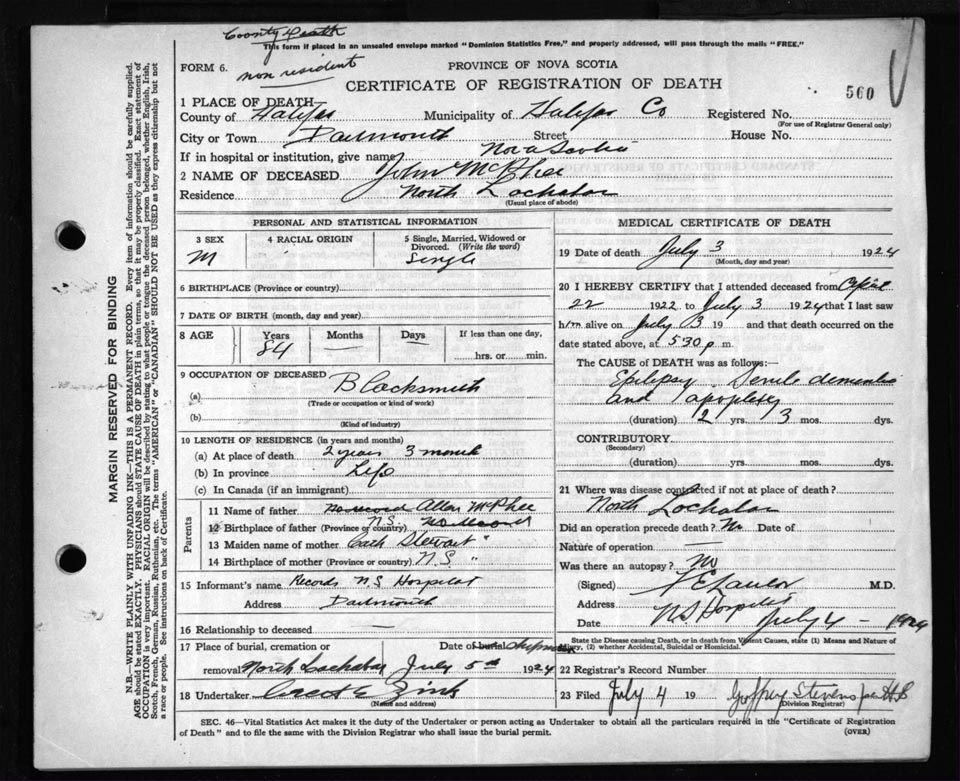 County Death
This form if placed in an unsealed envelope marked "Dominion Statistics Free," and properly addressed, will pass through the mails "FREE."
FORM 6.
non resident
PROVINCE OF NOVA SCOTIA
CERTIFICATE OF REGISTRATION OF DEATH
560
1 PLACE OF DEATH—
County of Halifax Municipality of Halifax Co Registered No.
(For use of Registrar General only)
City or Town Dartmouth Street House No.
If in hospital or institution, give name Nova Scotia
2 NAME OF DECEASED John McPhee
Residence North Lochaber
(Usual place of abode)
PERSONAL AND STATISTICAL INFORMATION
3 SEX 4 RACIAL ORIGIN 5 Single, Married, Widowed or Divorced. (Write the word)
M Single
6 BIRTHPLACE (Province or country)
7 DATE OF BIRTH (month, day and year)
8 AGE Years Months Days If less than one day,
84 — — hrs. or min.
9 OCCUPATION OF DECEASED
(a) Blacksmith
(Trade or occupation or kind of work)
(b)
(Kind of industry)
10 LENGTH OF RESIDENCE (in years and months)
(a) At place of death 2 years 3 month
(b) In province Life
(c) In Canada (if an immigrant)
Parents
11 Name of father no record Allan McPhee
12 Birthplace of father (Province or country) N.S. no record
13 Maiden name of mother Cath Stewart "
14 Birthplace of mother (Province or country) N.S. "
15 Informant's name Records N.S. Hospital
Address Dartmouth
16 Relationship to deceased —
17 Place of burial, cremation or Date of burial shipment
removal North Lochaber July 5th 1924
18 Undertaker Zink
(Name and address)
MEDICAL CERTIFICATE OF DEATH
19 Date of death July 3 1924
(Month, day and year)
20 I HEREBY CERTIFY that I attended deceased from April
22 1922 to July 3 1924 that I last saw
him alive on July 3 19 and that death occurred on
date stated above, at 5.30 p.m.
The CAUSE of DEATH was as follows:—
Epilepsy, Senile dementia
and apoplexy
(duration) 2 yrs. 3 mos. dys.
CONTRIBUTORY.
(Secondary)
(duration) yrs. mos. dys.
21 Where was disease contracted if not at place of death?
North Lochaber
Did an operation precede death? No Date of
Nature of operation —
Was there an autopsy? no
(Signed) F E Lawlor M.D.
Address N S Hospital
Date July 4 - 1924
State the Disease causing Death, or in death from Violent Causes, state (1) Means and Nature of Injury, (2) whether Accidental, Suicidal or Homicidal.
22 Registrar's Record Number
23 Filed July 4 19 Godfrey Stevens per H.S
(Division Registrar)
SEC. 46—Vital Statistics Act makes it the duty of the Undertaker or person acting as Undertaker to obtain all the particulars required in the "Certificate of Registration
of Death" and to file the same with the Division Registrar who shall issue the burial permit. (OVER)
MARGIN RESERVED FOR BINDING
N.B.—WRITE PLAINLY WITH UNFADING INK—THIS IS A PERMANENT RECORD. Every item of information should be carefully supplied.
AGE should be stated EXACTLY. PHYSICIANS should STATE CAUSE OF DEATH in plain terms, so that it may be properly classified. Exact statement of
OCCUPATION is very important. RACIAL ORIGIN will be described by stating to what people or tongue the deceased person belonged, whether English, Irish,
Scotch, French, German, Russian, Ruthenian, etc. The terms "AMERICAN" or "CANADIAN" SHOULD NOT BE USED as they express citizenship but not
a race or people. See instructions on back of Certificate.